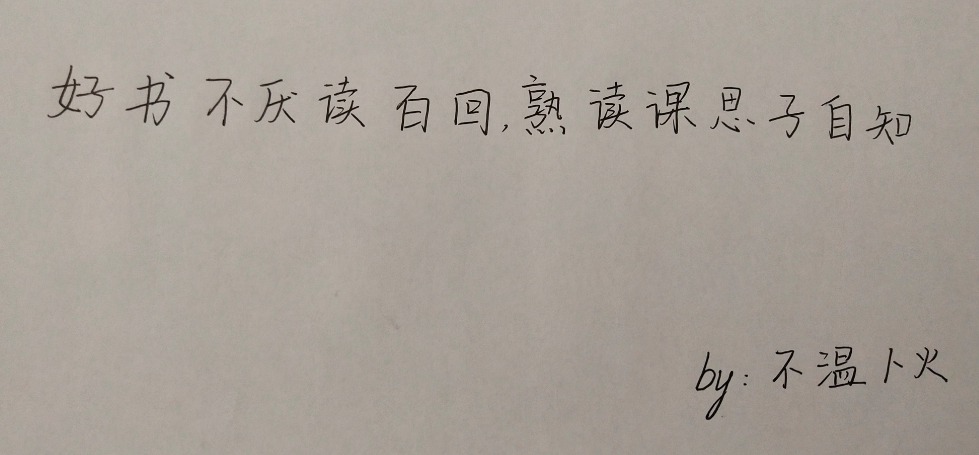 好书不厌读百回,熟读课思子自知
by:不温卜火